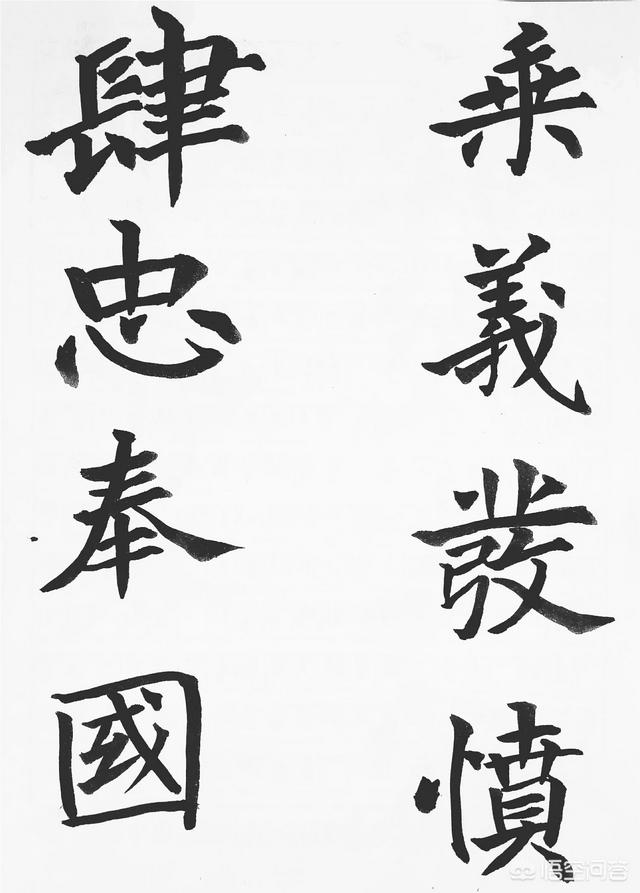 乗義發憤
肆忠奉國
悟空问答